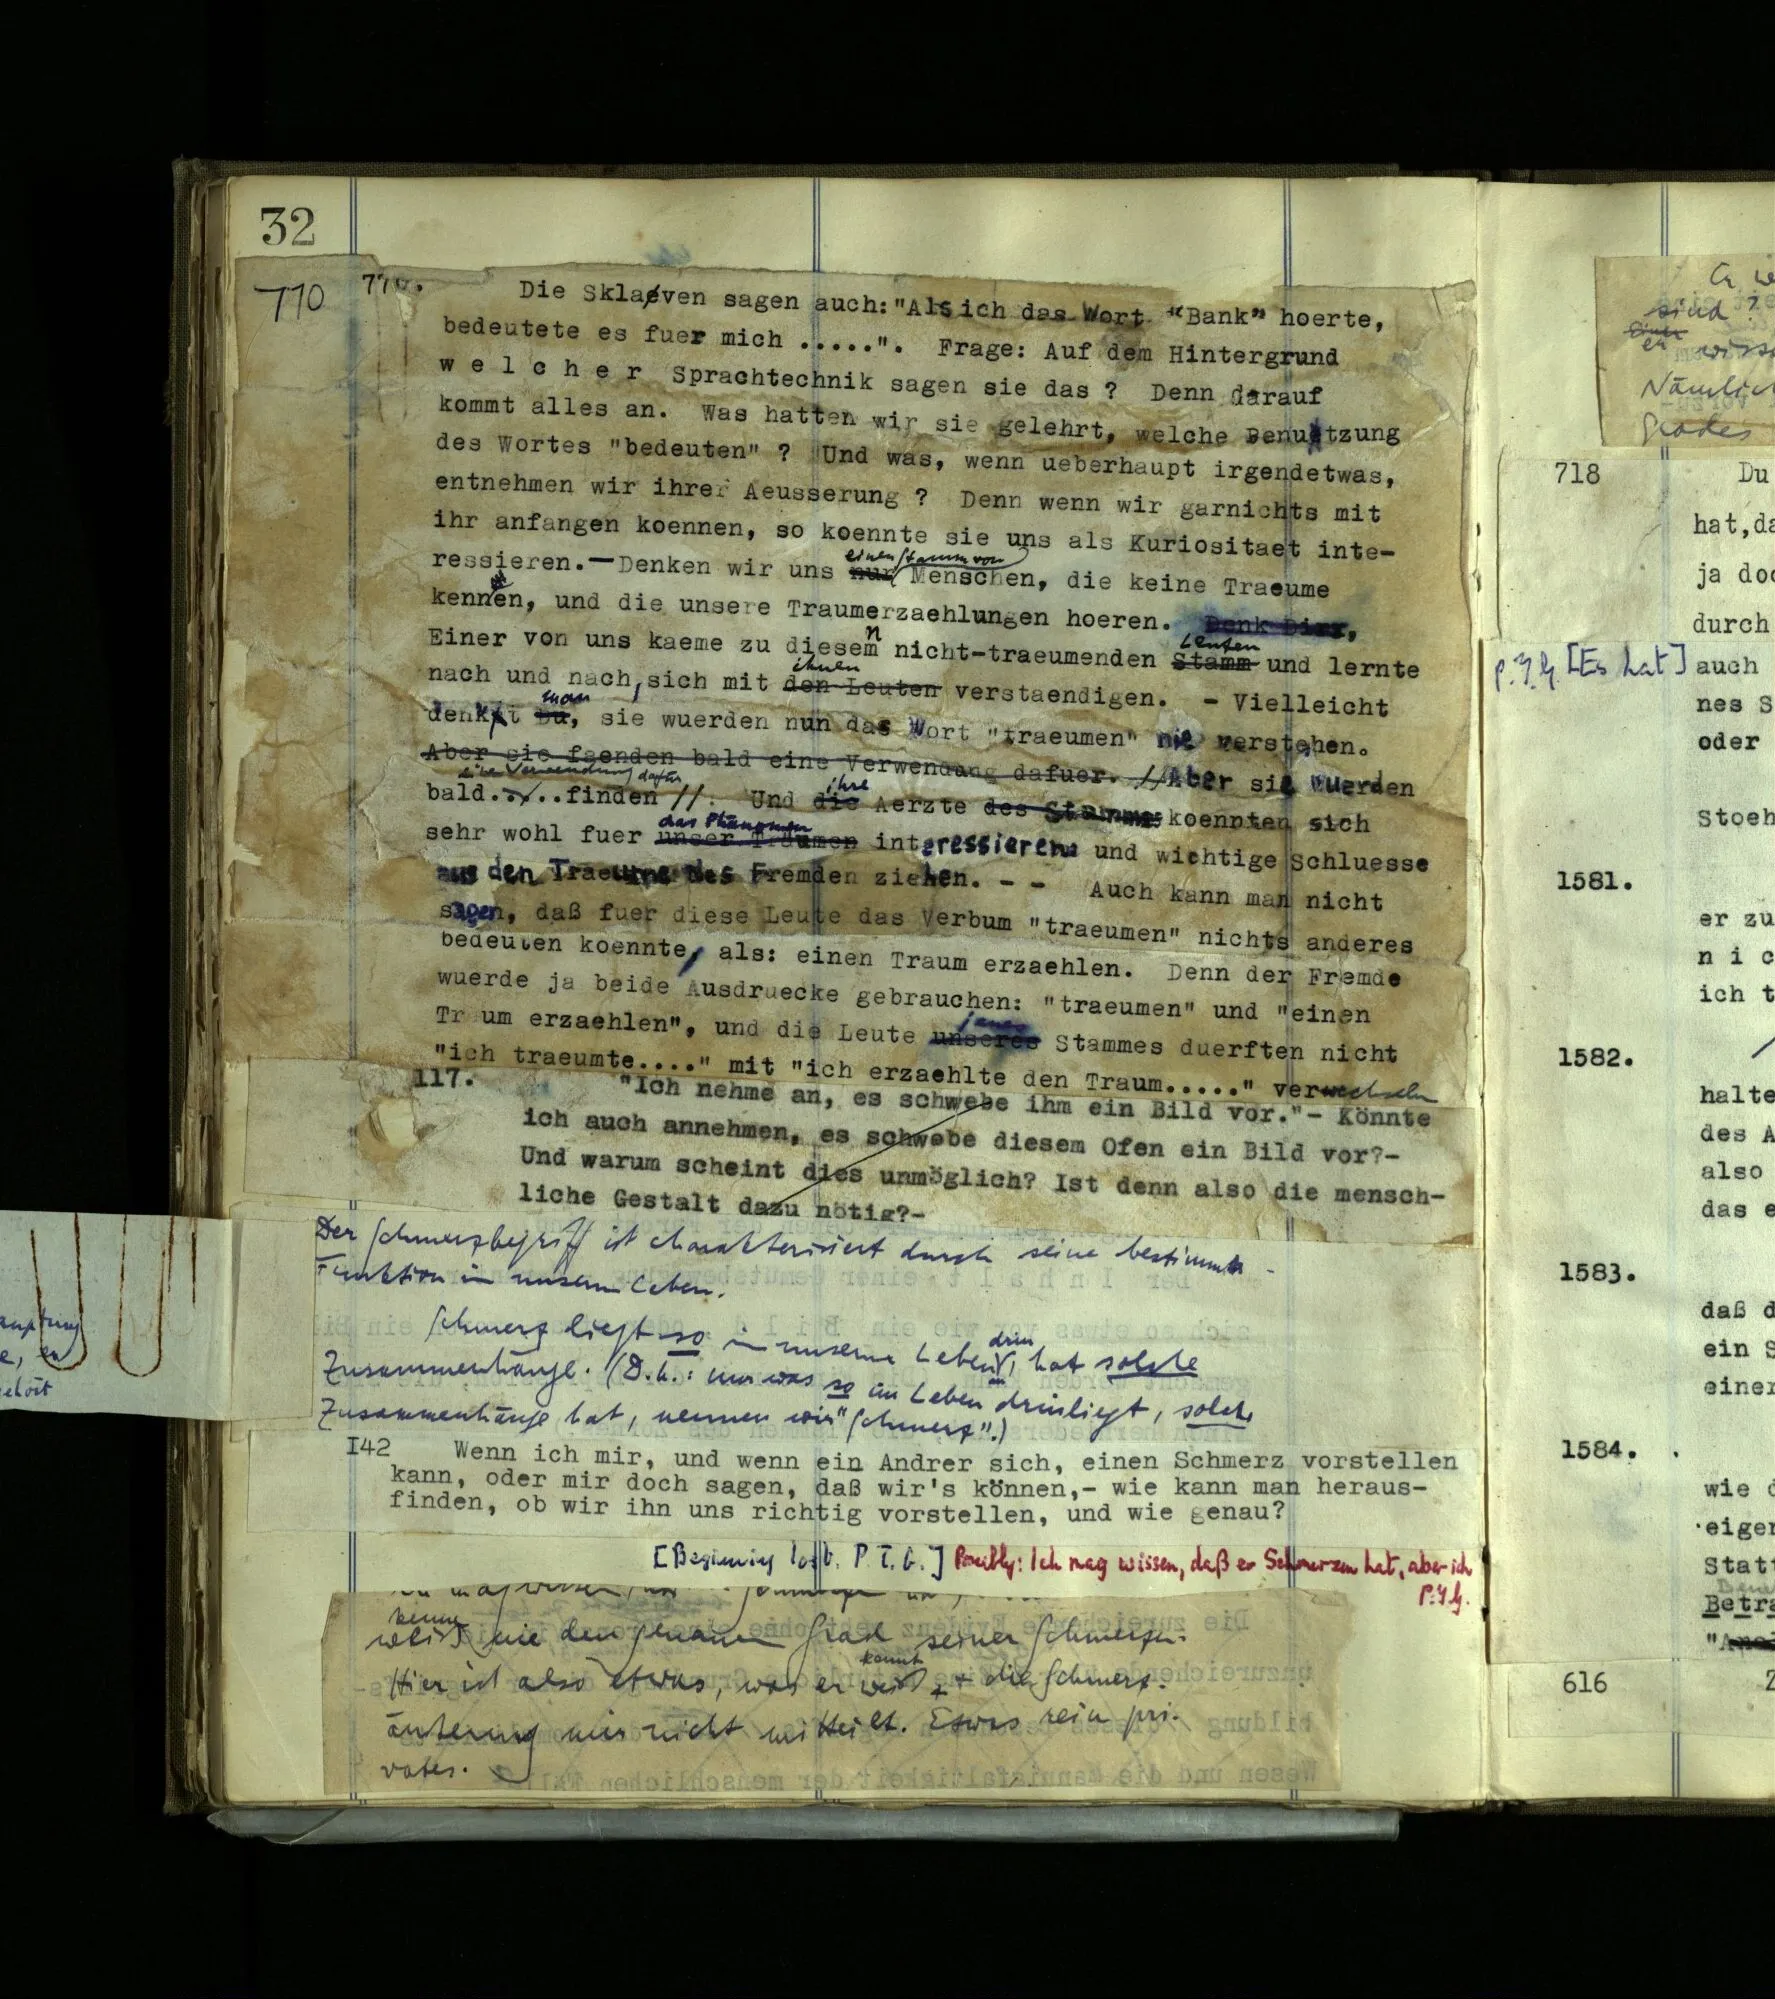 32
770
770.
Die Sklaven sagen auch: "Als ich das Wort "Bank" hoerte,
bedeutete es fuer mich .....". Frage: Auf dem Hintergrund
w e l c h e r Sprachtechnik sagen sie das ? Denn darauf
kommt alles an. Was hatten wir sie gelehrt, welche Benuetzung
des Wortes "bedeuten" ? Und was, wenn ueberhaupt irgendetwas,
entnehmen wir ihrer Aeusserung ? Denn wenn wir garnichts mit
ihr anfangen koennen, so koennte sie uns als Kuriositaet inte-
einen Stamm von
ressieren.—Denken wir uns nur Menschen, die keine Traeume
kennen, und die unsere Traumerzaehlungen hoeren. Denk Dir,
n Leuten
Einer von uns kaeme zu diesem nicht-traeumenden Stamm und lernte
ihnen
nach und nach, sich mit den Leuten verstaendigen. - Vielleicht
man
denkt Du, sie wuerden nun das Wort "traeumen" nie verstehen.
Aber sie faenden bald eine Verwendung dafuer. //Aber sie wuerden
eine Verwendung dafür ihre
bald.....finden //. Und die Aerzte des Stammes koennten sich
das Phänomen
sehr wohl fuer unser Träumen interessieren und wichtige Schluesse
aus den Traeumen des Fremden ziehen. - - Auch kann man nicht
sagen, daß fuer diese Leute das Verbum "traeumen" nichts anderes
bedeuten koennte, als: einen Traum erzaehlen. Denn der Fremde
wuerde ja beide Ausdruecke gebrauchen: "traeumen" und "einen
Traum erzaehlen", und die Leute unseres jenes Stammes duerften nicht
"ich traeumte...." mit "ich erzaehlte den Traum....." verwechseln
117.
"Ich nehme an, es schwebe ihm ein Bild vor."- Könnte
ich auch annehmen, es schwebe diesem Ofen ein Bild vor?-
Und warum scheint dies unmöglich? Ist denn also die mensch-
liche Gestalt dazu nötig?-
Der Schmerzbegriff ist charakterisiert durch seine bestimmte
Funktion in unserm Leben.
Schmerz liegt so in unserm Leben drin, hat solche
Zusammenhänge. (D.h.: nur was so im Leben drinliegt, solche
Zusammenhänge hat, nennen wir "Schmerz".)
I42 Wenn ich mir, und wenn ein Andrer sich, einen Schmerz vorstellen
kann, oder mir doch sagen, daß wir's können,- wie kann man heraus-
finden, ob wir ihn uns richtig vorstellen, und wie genau?
[Beginning lost. P.T.G.] Possibly: Ich mag wissen, daß er Schmerzen hat, aber ich
P.T.G.
kenne
weiß nie den genauen Grad seiner Schmerzen.
kennt
Hier ist also etwas, was er weiß + die Schmerz-
äußerung mir nicht mitteilt. Etwas rein pri-
vates.
sind?
Nämlich
Grades
718
Du
hat, da
ja doc
durch
P.T.G. [Es hat]
auch
nes S
oder
Stoeh
1581.
er zu
n i c
ich t
1582.
halte
des A
also
das e
1583.
daß d
ein S
einer
1584.
wie d
eiger
Statt
Betra
616
Z